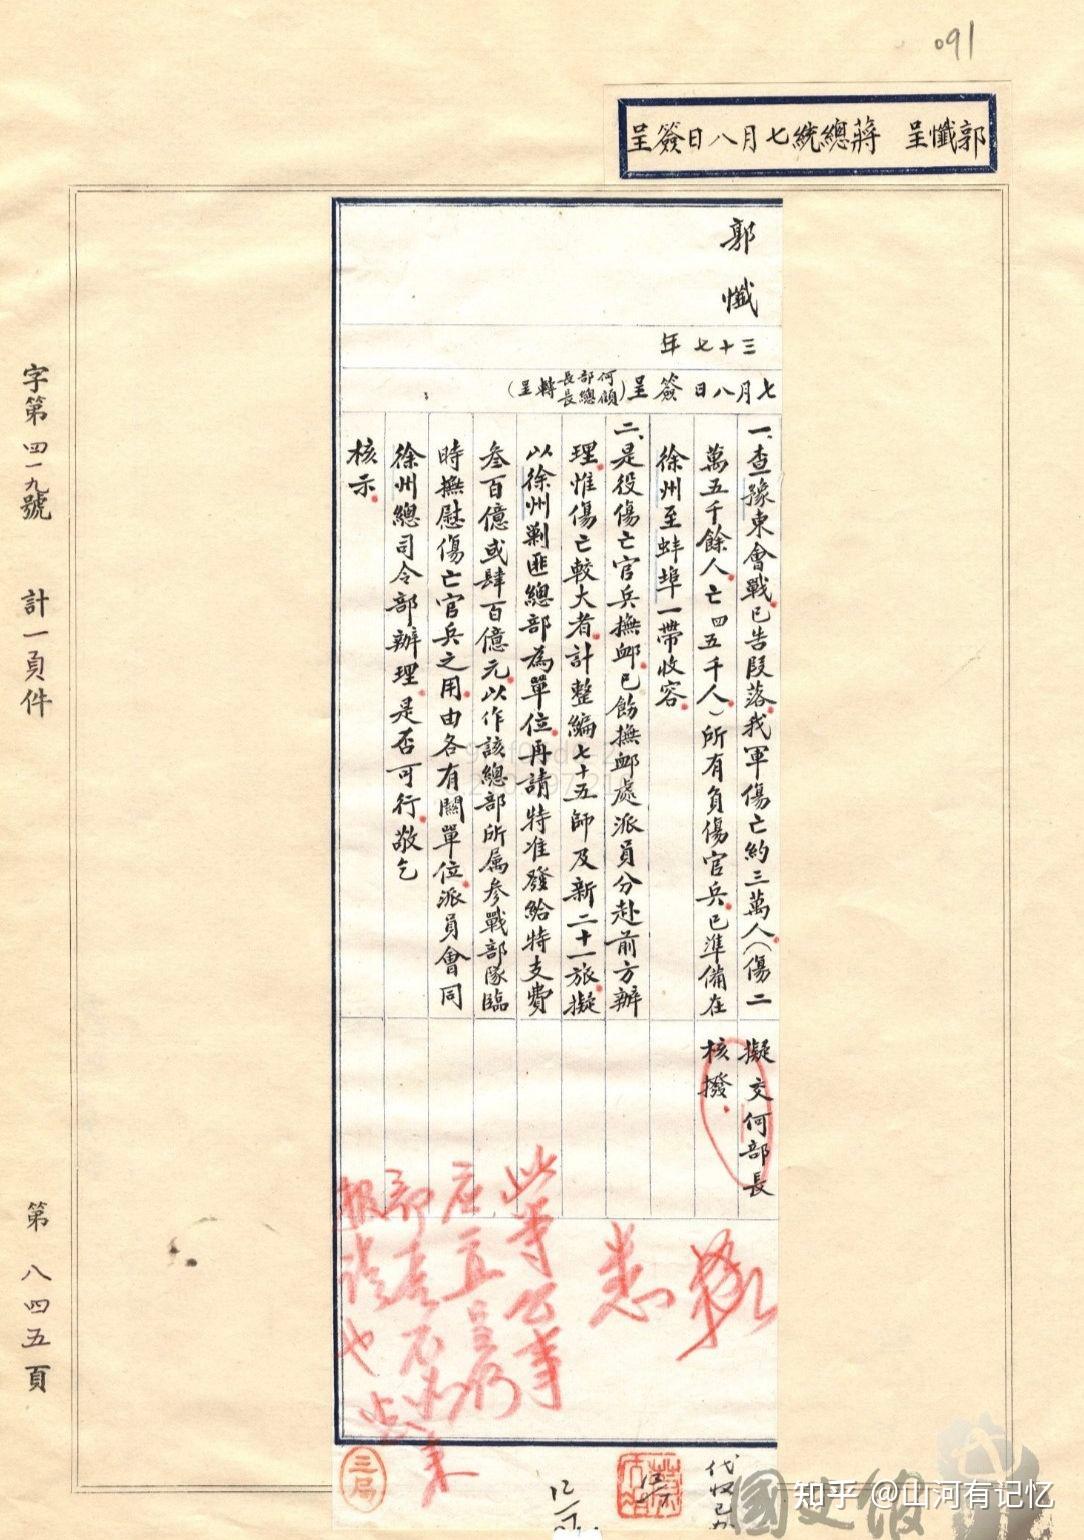 091
郭懺呈　蔣總統七月八日簽呈
郭懺
三十七年
七月八日簽呈（何部長顧總長轉呈）
一、查豫東會戰已告段落我軍傷亡約三萬人（傷二
萬五千餘人亡四五千人）所有負傷官兵已準備在
徐州至蚌埠一帶收容
二、是役傷亡官兵撫卹已飭撫卹處派員分赴前方辦
理惟傷亡較大者計整編七十五師及新二十一旅擬
以徐州剿匪總部為單位再請特准發給特支費
叁百億或肆百億元以作該總部所屬參戰部隊臨
時撫慰傷亡官兵之用由各有關單位派員會同
徐州總司令部辦理是否可行敬乞
核示
擬交何部長
核撥
悉
此等公事
應立
報請也
三局
代收已办
字第四一九號　計一頁件
第八四五頁
國史館
知乎 @山河有记忆